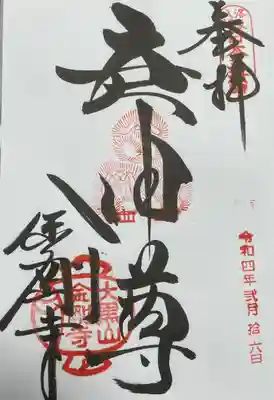 奉拝
庚申尊
令和四年弐月拾六日
金剛寺
大黒山
金剛寺